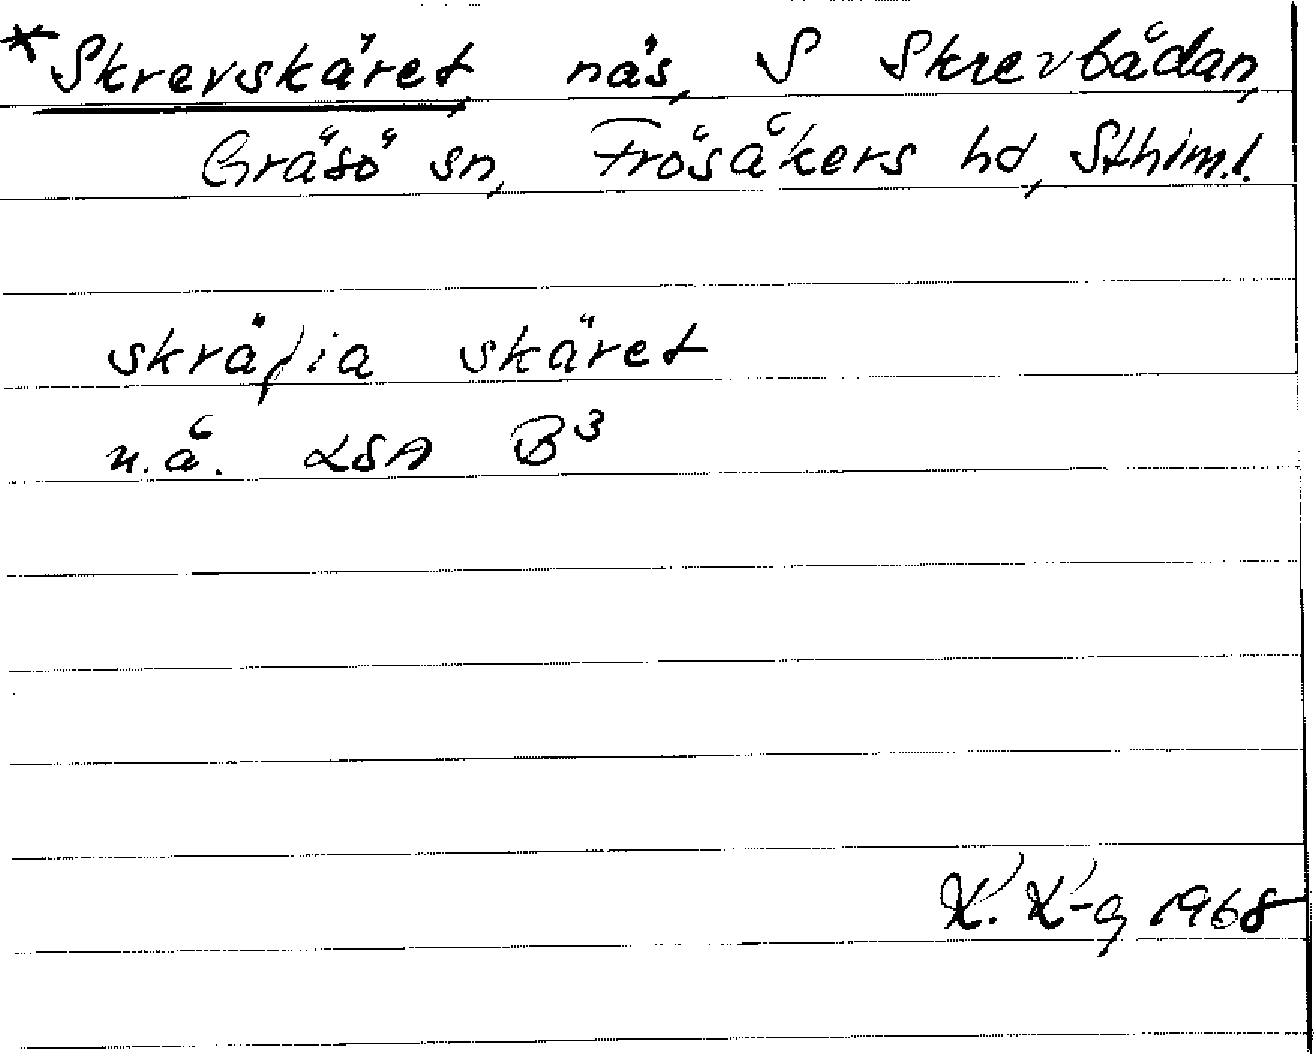 *Skrevskäret, näs, S Skrevbådan,
Gräsö sn, Frösåkers hd, Sthlm.l.
skräfia skäret
u.å. LSA B3
K. K-g 1968